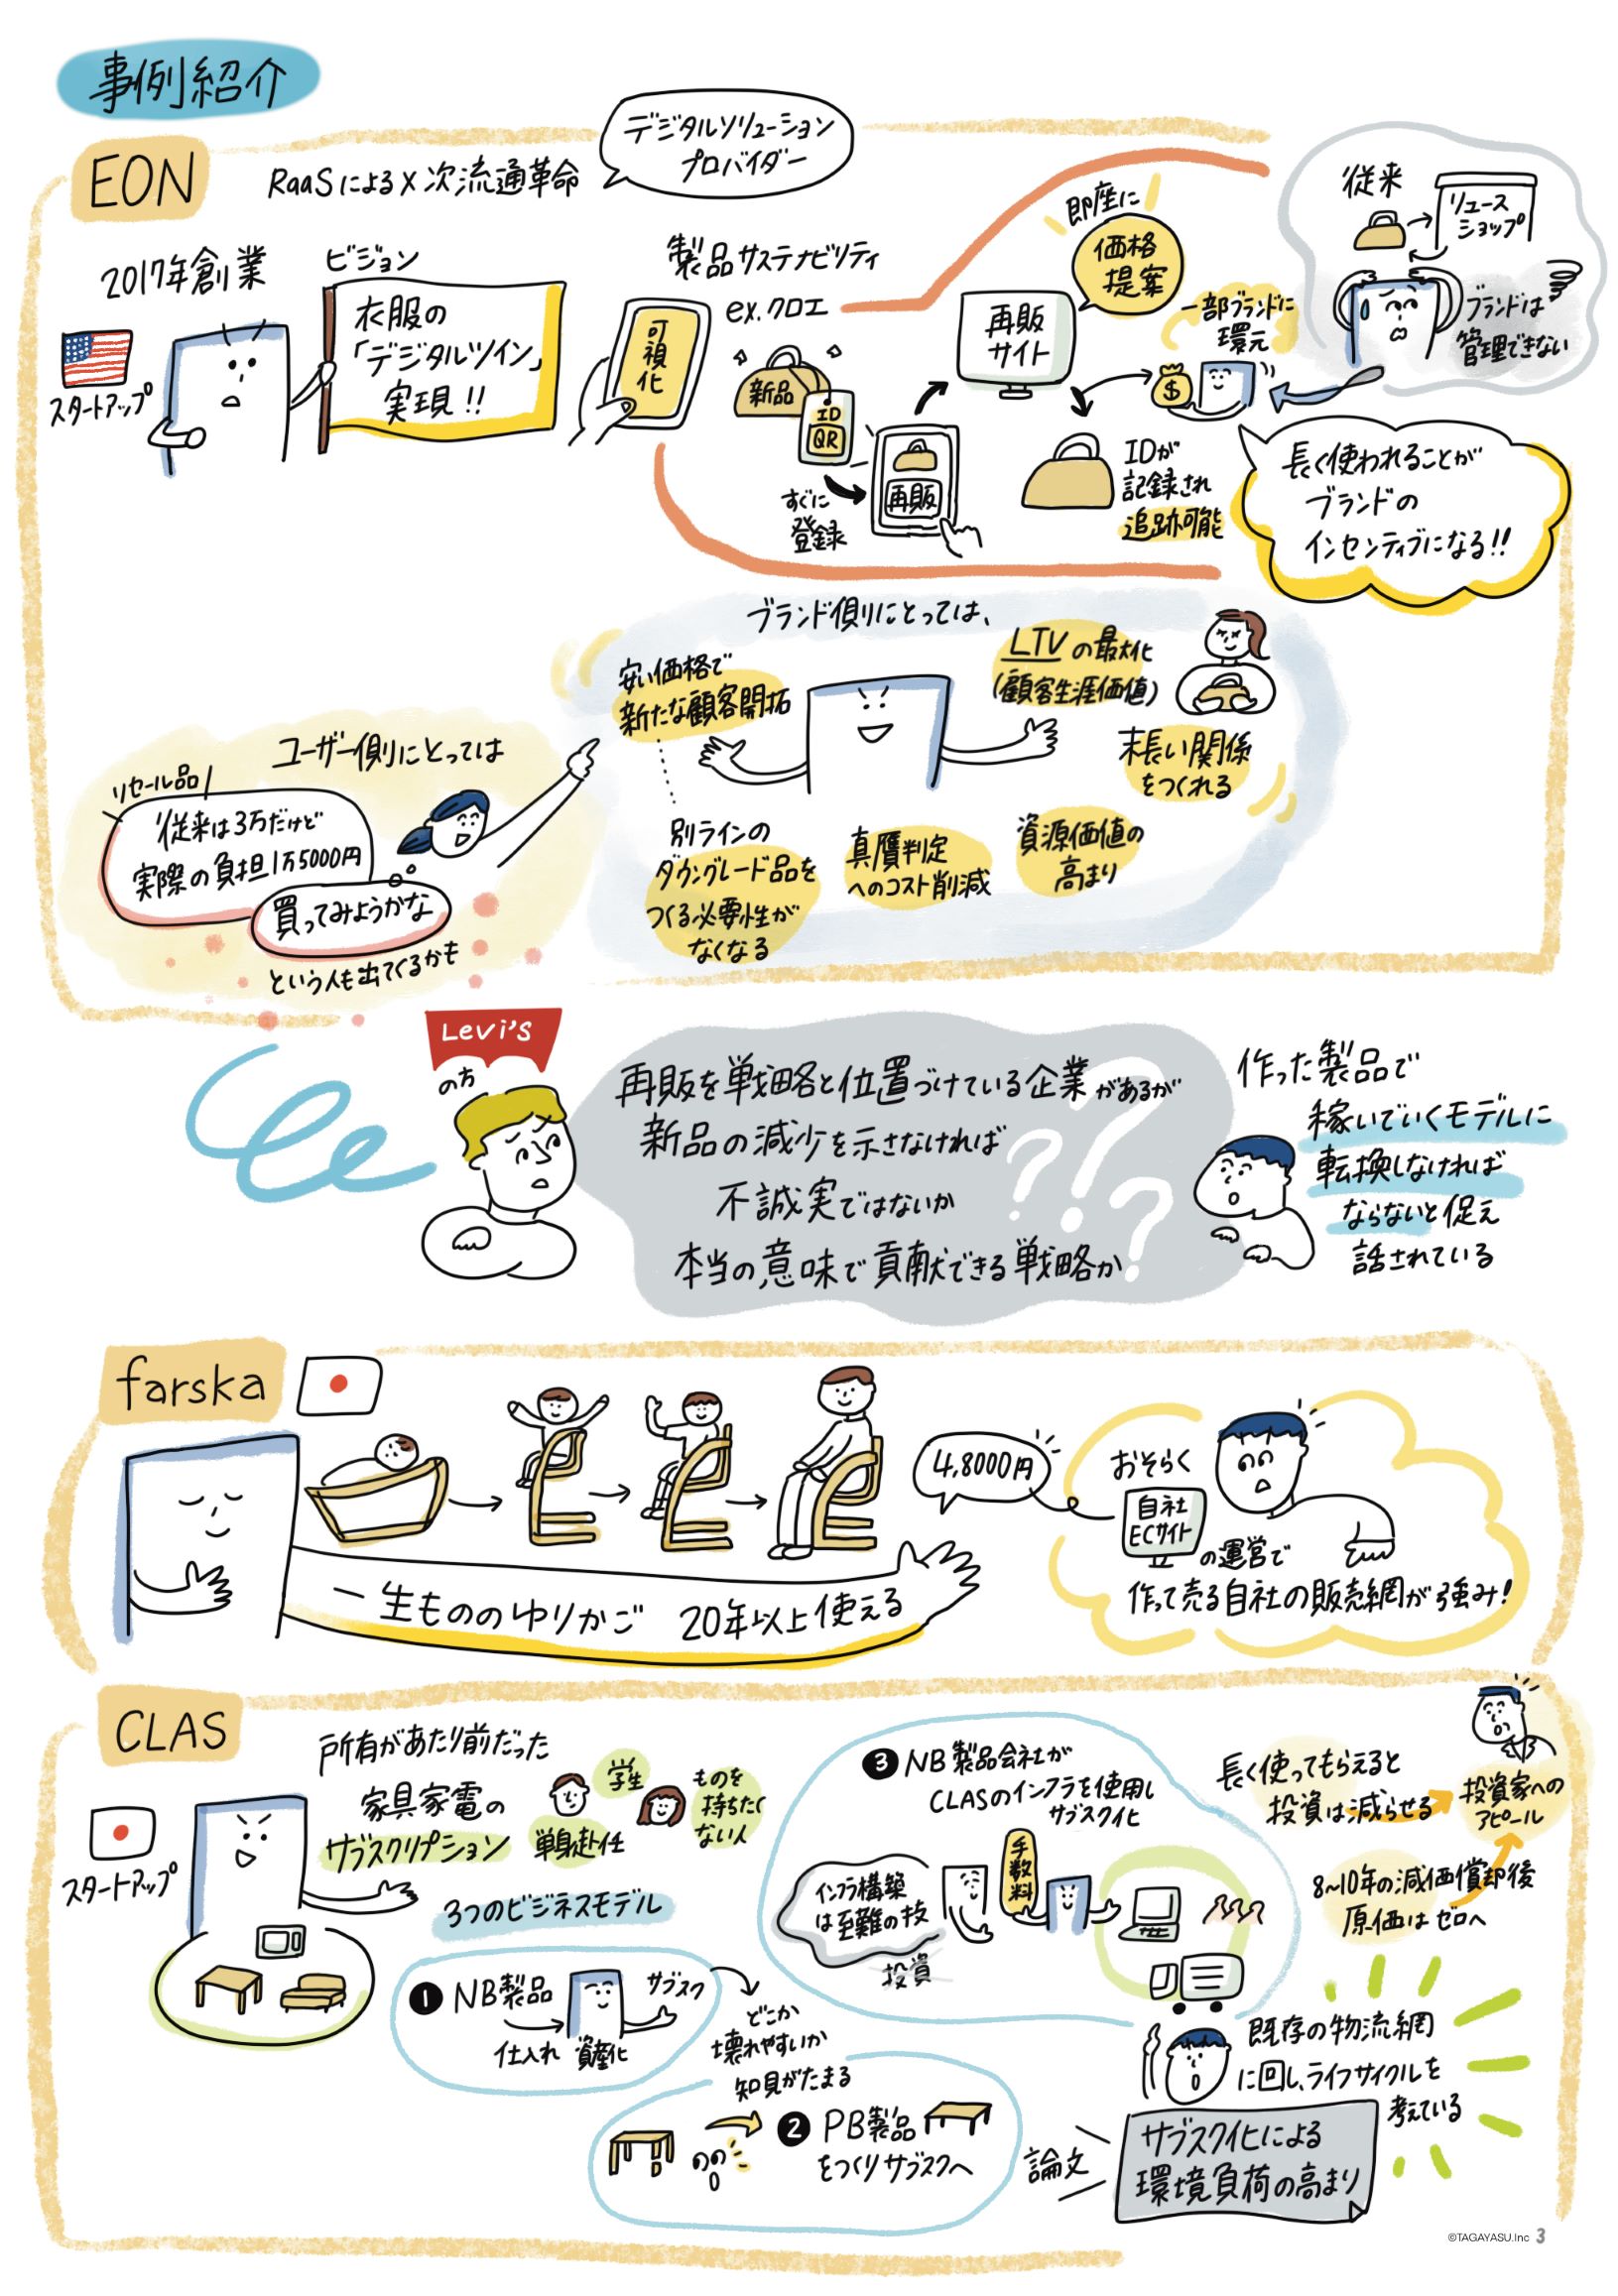 事例紹介
EON
RaaSによる×次流通革命
デジタルソリューション
プロバイダー
2017年創業
スタートアップ
ビジョン
衣服の
「デジタルツイン」
実現!!
可視化
製品サステナビリティ
ex.クロエ
新品
ID
QR
すぐに
登録
再販
再販
サイト
即座に
価格
提案
一部ブランドに
環元
$
IDが
記録され
追跡可能
従来
リユース
ショップ
ブランドは
管理できない
長く使われることが
ブランドの
インセンティブになる!!
ブランド側にとっては、
安い価格で
新たな顧客開拓
LTVの最大化
(顧客生涯価値)
末長い関係
をつくれる
別ラインの
ダウングレード品を
つくる必要性が
なくなる
真贋判定
へのコスト削減
資源価値の
高まり
ユーザー側にとっては
リセール品
従来は3万だけど
実際の負担1万5000円
買ってみようかな
という人も出てくるかも
Levi's
の方
再販を戦略と位置づけている企業があるが
新品の減少を示さなければ
不誠実ではないか
本当の意味で貢献できる戦略か
???
作った製品で
稼いでいくモデルに
転換しなければ
ならないと捉え
話されている
farska
一生もののゆりかご 20年以上使える
4,8000円
おそらく
自社
ECサイト
の運営で
作って売る自社の販売網が強み!
CLAS
スタートアップ
所有があたり前だった
家具家電の
サブスクリプション
学生
単身赴任
ものを
持ちたく
ない人
3つのビジネスモデル
1 NB製品
仕入れ
資産化
サブスク
どこか
壊れやすいか
知見がたまる
2 PB製品
をつくりサブスクへ
3 NB製品会社が
CLASのインフラを使用し
サブスク化
インフラ構築
は至難の技
投資
手数料
長く使ってもらえると
投資は減らせる
投資家への
アピール
8~10年の減価償却後
原価はゼロへ
既存の物流網
に回し、ライフサイクルを
考えている
論文
サブスク化による
環境負荷の高まり
©TAGAYASU.Inc 3